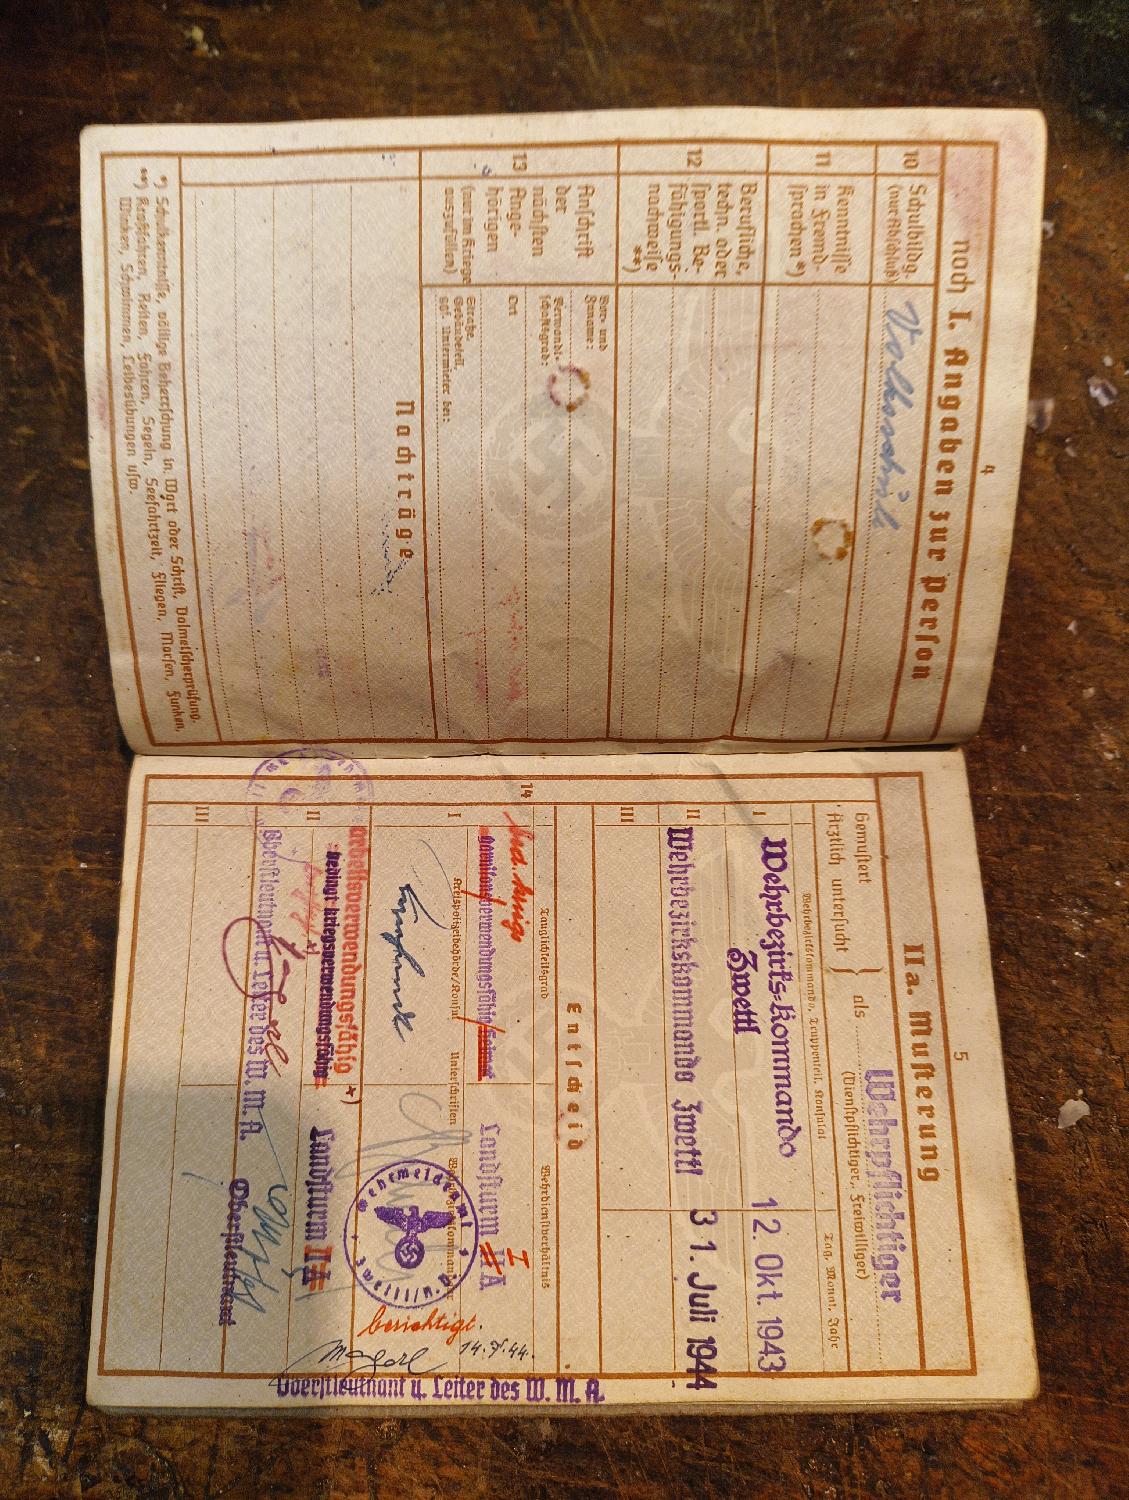 4
noch I. Angaben zur Person
10
Schulbildg.
(nur Abschluß)
Volksschule
11
Kenntnisse
in Fremd-
sprachen *)
12
Berufliche,
techn. oder
sportl. Be-
fähigungs-
nachweise
**)
13
Anschrift
der
nächsten
Ange-
hörigen
(nur im Kriege
auszufüllen)
Vor- und
Zuname:
Verwandt-
schaftsgrad:
Ort
Straße,
Gebäudeteil,
ggf. Untermieter bei:
Nachträge
*) Schulkenntnisse, völlige Beherrschung in Wort oder Schrift, Dolmetscherprüfung.
**) Radfahren, Reiten, Fahren, Segeln, Seefahrtzeit, Fliegen, Morsen, Funken,
Winken, Schwimmen, Leibesübungen usw.
5
IIa. Musterung
Gemustert
Ärztlich untersucht
als
Wehrpflichtiger
(Dienstpflichtiger, Freiwilliger)
Wehrbezirkskommando, Truppenteil, Konsulat
Tag, Monat, Jahr
I
Wehrbezirks-Kommando
Zwettl
12. Okt. 1943
II
Wehrbezirkskommando Zwettl
31. Juli 1944
III
14
Entscheid
Tauglichkeitsgrad
Wehrdienstverhältnis
I
garnisonsverwendungsfähig Heimat
Landsturm II A
I
Kreispolizeibehörde/Konsul
Unterschriften
Wehrmeldeamt
berichtigt.
14.7.44.
Oberstleutnant u. Leiter des W. M. A.
II
arbeitsverwendungsfähig *)
bedingt kriegsverwendungsfähig *)
Landsturm II A
Oberstleutnant u. Leiter des W. M. A.
Oberstleutnant
III